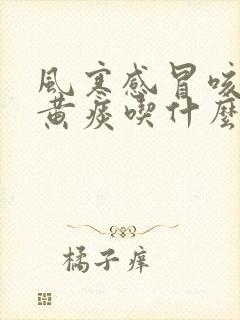 風寒感冒咳
黃痰喫什麼
橘子庠